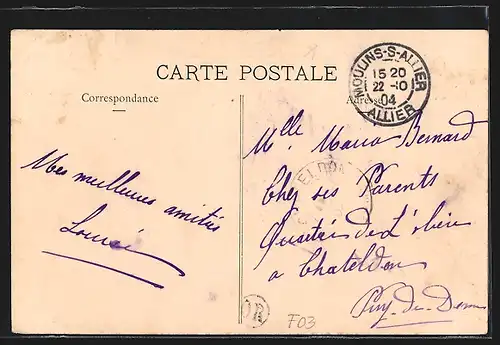 CARTE POSTALE
Correspondance
Adresse
MOULINS-S-ALLIER
15 20
22 -10
04
ALLIER
Mes meilleures amitiés
Melle Maria Bernard
Chez ses Parents
Quartier de
à Chateldon
Puy-de-Dôme
F03